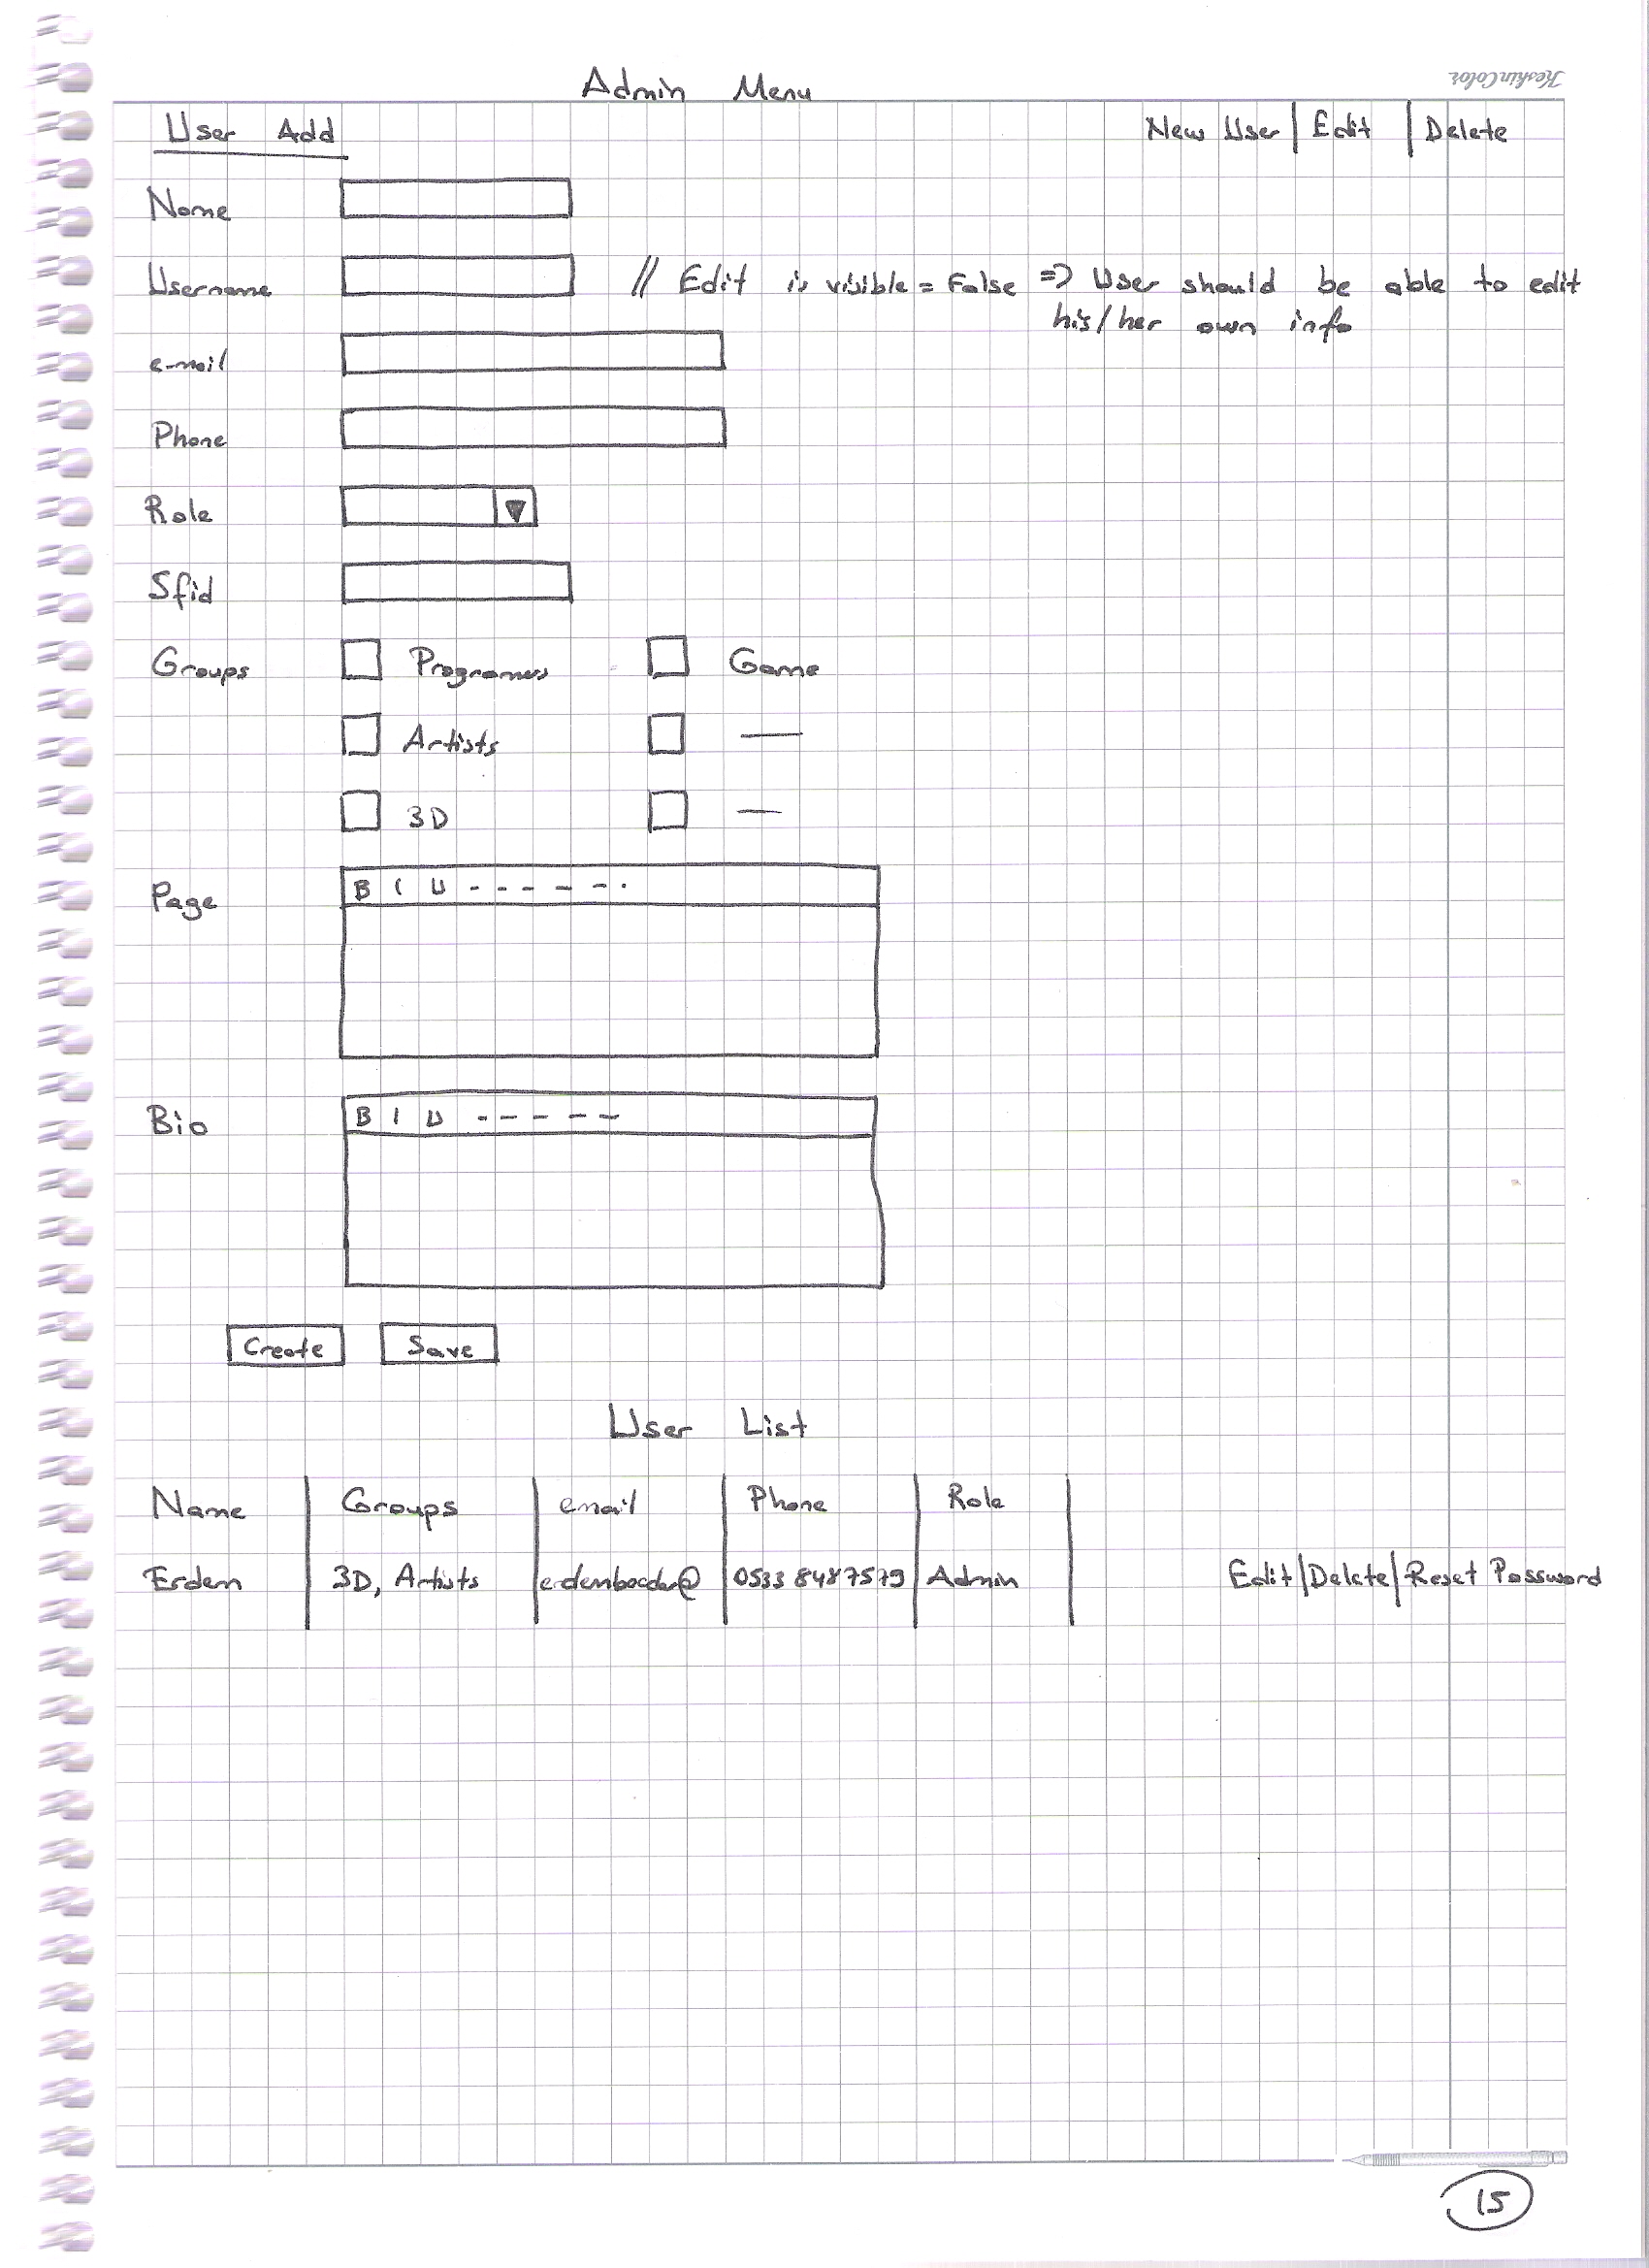 KeskinColor
Admin Menu
User Add
New User | Edit | Delete
Name
Username // Edit is visible = False => User should be able to edit
his/her own info
e-mail
Phone
Role
Sfid
Groups Programers Game
Artists —
3D —
Page B I U - - - - - -
Bio B I U - - - - -
Create Save
User List
Name | Groups | email | Phone | Role |
Erdem 3D, Artists 0533 8487579 Admin Edit | Delete | Reset Password
15